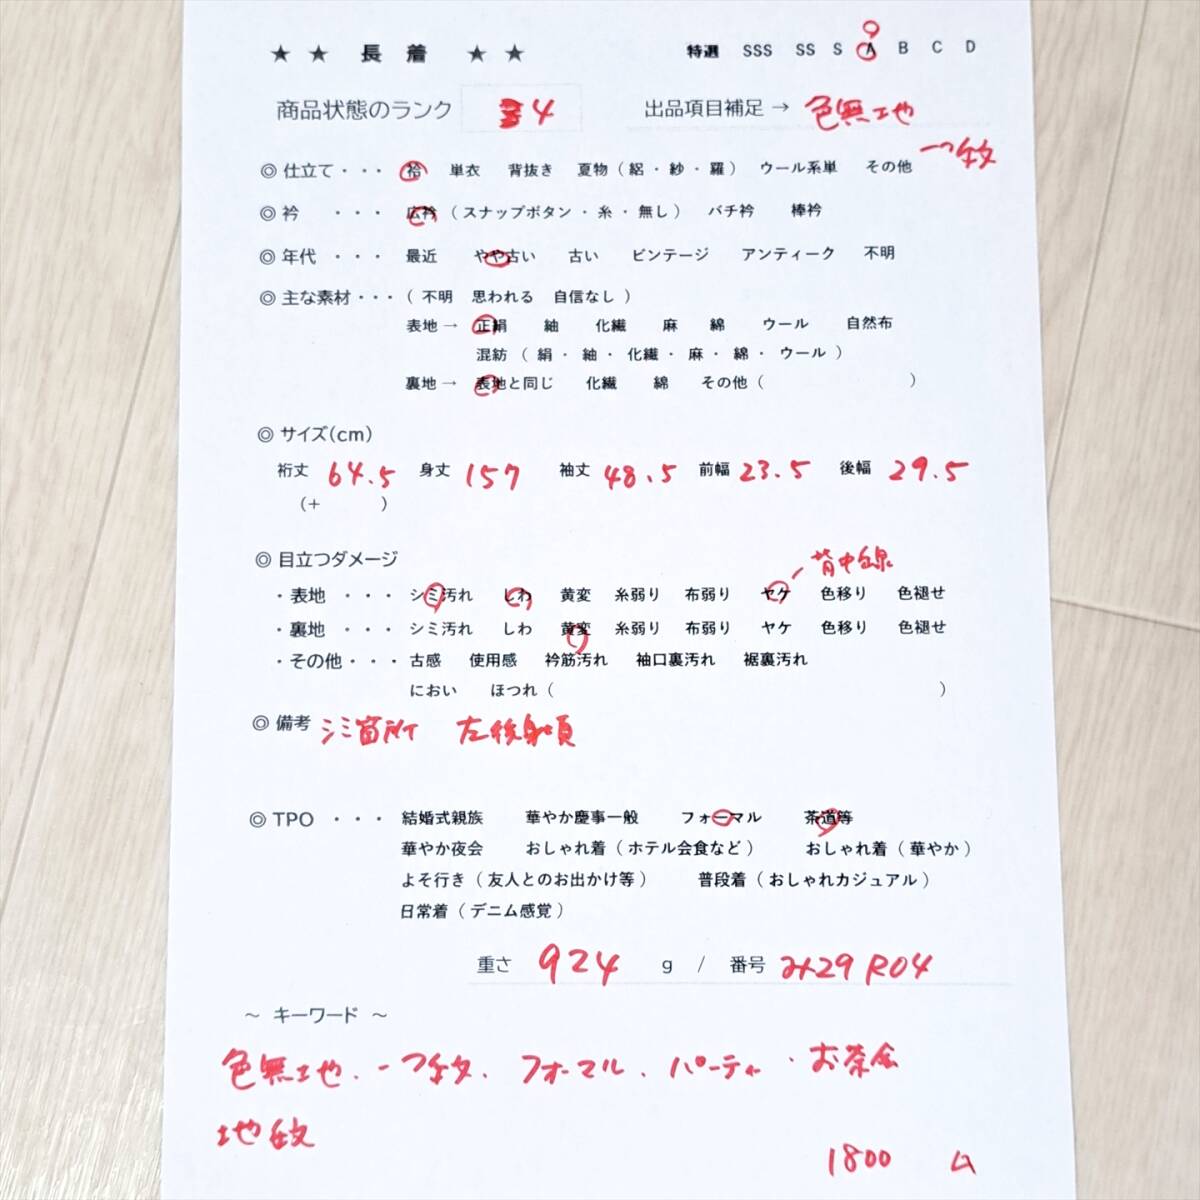 ★ ★ 長 着 ★ ★ 特選 SSS SS S A B C D
商品状態のランク 4 出品項目補足 → 色無地
一つ紋
◎ 仕立て・・・ 袷 単衣 背抜き 夏物（絽・紗・羅） ウール系単 その他
◎ 衿 ・・・ 広衿（スナップボタン・糸・無し） バチ衿 棒衿
◎ 年代 ・・・ 最近 やや古い 古い ビンテージ アンティーク 不明
◎ 主な素材・・・（ 不明 思われる 自信なし ）
表地 → 正絹 紬 化繊 麻 綿 ウール 自然布
混紡（ 絹・ 紬・ 化繊・ 麻・ 綿・ ウール ）
裏地 → 表地と同じ 化繊 綿 その他（ ）
◎ サイズ(cm)
裄丈 64.5 身丈 157 袖丈 48.5 前幅 23.5 後幅 29.5
（+ ）
◎ 目立つダメージ
背中心線
・表地 ・・・ シミ汚れ しわ 黄変 糸弱り 布弱り ヤケ 色移り 色褪せ
・裏地 ・・・ シミ汚れ しわ 黄変 糸弱り 布弱り ヤケ 色移り 色褪せ
・その他・・・ 古感 使用感 衿筋汚れ 袖口裏汚れ 裾裏汚れ
におい ほつれ（ ）
◎ 備考 シミ箇所 左後身頃
◎ TPO ・・・ 結婚式親族 華やか慶事一般 フォーマル 茶道等
華やか夜会 おしゃれ着（ホテル会食など） おしゃれ着（華やか）
よそ行き（友人とのお出かけ等） 普段着（おしゃれカジュアル）
日常着（デニム感覚）
重さ 924 g / 番号 み29R04
～ キーワード ～
色無地、一つ紋、フォーマル、パーティ・お茶会
地紋
1800 ム